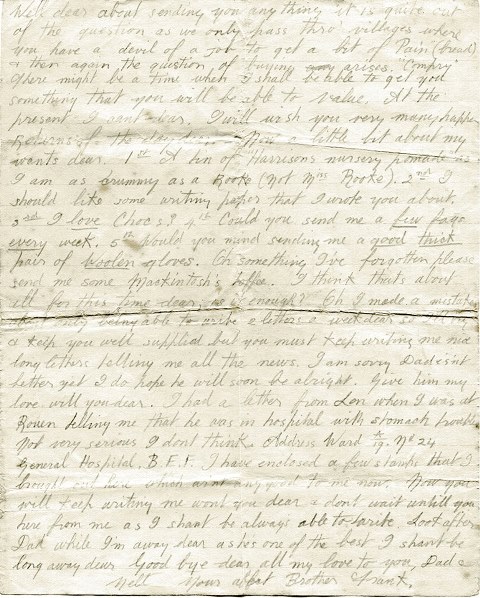 Well dear about sending you anything it is quite out
of the question as we only pass thro villages where
you have a devil of a job to get a bit of Pain (bread)
& then again the question of buying any arises. "Compry"
There might be a time when I shall be able to get you
something that you will be able to value. At the
present I cant dear. I will wish you very many happy
Returns of the day dear. Now a little bit about my
wants dear. 1st A tin of Harrisons nursery pomade as
I am as crummy as a Rooke (Not Mrs Rooke). 2nd I
should like some writing paper that I wrote you about.
3rd I love Chocs? 4th Could you send me a few fags
every week. 5th Would you mind sending me a good thick
pair of woolen gloves. Oh something I've forgotten please
send me some Mackintosh's toffee. I think thats about
all for this time dear, is it enough? Oh I made a mistake
only being able to write 2 letters a week dear
& keep you well supplied but you must keep writing me nice
long letters telling me all the news. I am sorry Dad isnt
better yet I do hope he will soon be alright. Give him my
love will you dear. I had a letter from Len when I was at
Rouen telling me that he was in hospital with stomach trouble
Not very serious I dont think. Address Ward 19. No 24
General Hospital, B.E.F. I have enclosed a few stamps that I
brought out here which arnt any good to me now. Now you
will keep writing me wont you dear & dont wait untill you
here from me as I shant be always able to write. Look after
Dad while I'm away dear as he's one of the best I shant be
long away dear Good bye dear all my love to you, Dad &
Nell Your affat Brother Frank.